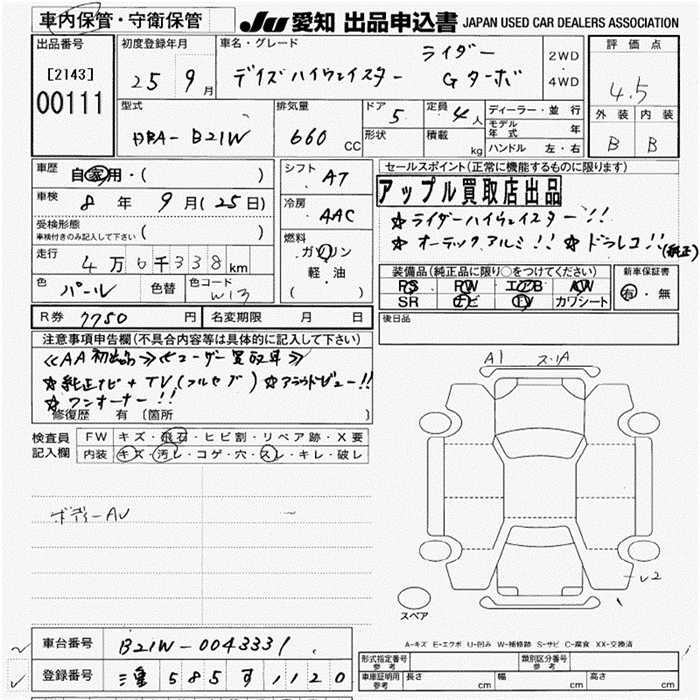 車内保管・守衛保管
JU 愛知 出品申込書 JAPAN USED CAR DEALERS ASSOCIATION
出品番号
[2143]
00111
初度登録年月
25 9月
車名・グレード
ライダー
デイズハイウェイスター Gターボ
2WD
4WD
評価点
4.5
外装 内装
B B
型式
DBA-B21W
排気量
660 CC
ドア 5
形状
定員 4人
積載 kg
ディーラー・並行
モデル年式 年
ハンドル 左・右
車歴 自家用・( )
車検 8年 9月(25日)
受検形態
車検付きのみ記入して下さい ( )
走行 4万6千338km
色 パール 色替 色コード W13
シフト AT
冷房 AAC
燃料
ガソリン
軽油
( )
セールスポイント(正常に機能するものに限ります)
アップル買取店出品
☆ライダーハイウェイスター!!
☆オーテックアルミ!! ☆ドラレコ!!(純正)
装備品(純正品に限り○をつけてください)
PS PW エアB AW
SR ナビ TV カワシート
新車保証書
有・無
後日品
R券 7750円 名変期限 月 日
注意事項申告欄(不具合内容等は具体的に記入して下さい)
≪AA初出品≫≪ユーザー買取車≫
☆純正ナビ+TV(フルセグ) ☆アラウンドビュー!!
☆ワンオーナー!!
修復歴 有〔箇所 〕
検査員記入欄
FW キズ・飛石・ヒビ割・リペア跡・X要
内装 キズ・汚レ・コゲ・穴・スレ・キレ・破レ
ボディーAU
A1 スリA
レ2
スペア
A-キズ E-エクボ U-凹み W-補修跡 S-サビ C-腐食 XX-交換済
車台番号 B21W-0043331
登録番号 三重 585 す 1120
形式指定番号 参考
類別区分番号 参考
車庫証明用 参考 長さ cm 幅 cm 高さ cm